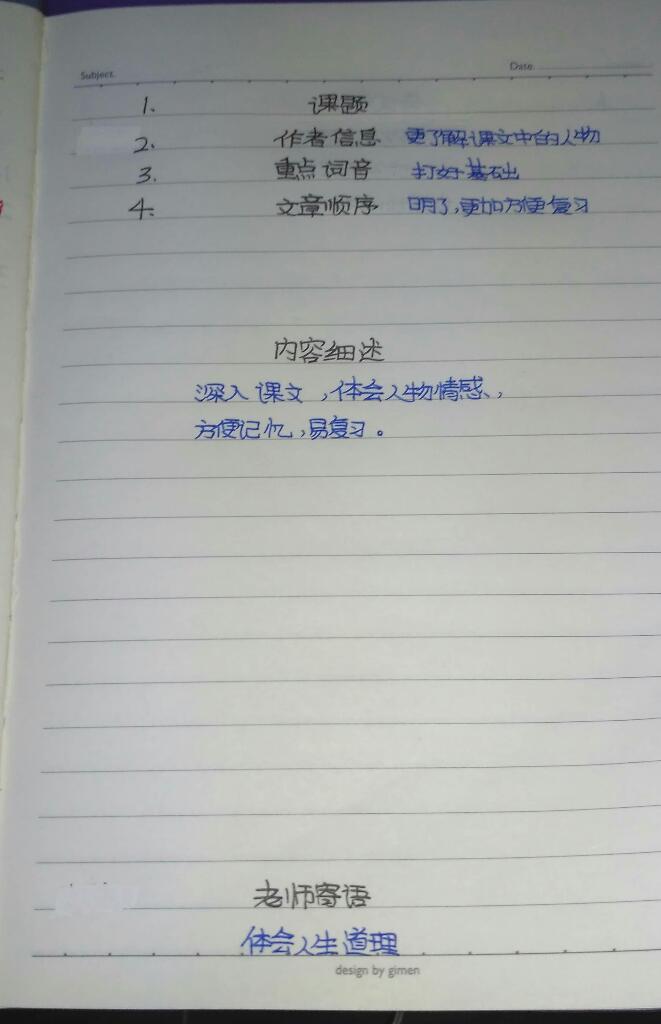 Subject. Date.
1. 课题
2. 作者信息 更了解课文中的人物
3. 重点词音 打好基础
4. 文章顺序 明了,更加方便复习
内容细述
深入课文,体会人物情感、,
方便记忆,易复习。
老师寄语
体会人生道理
design by gimen